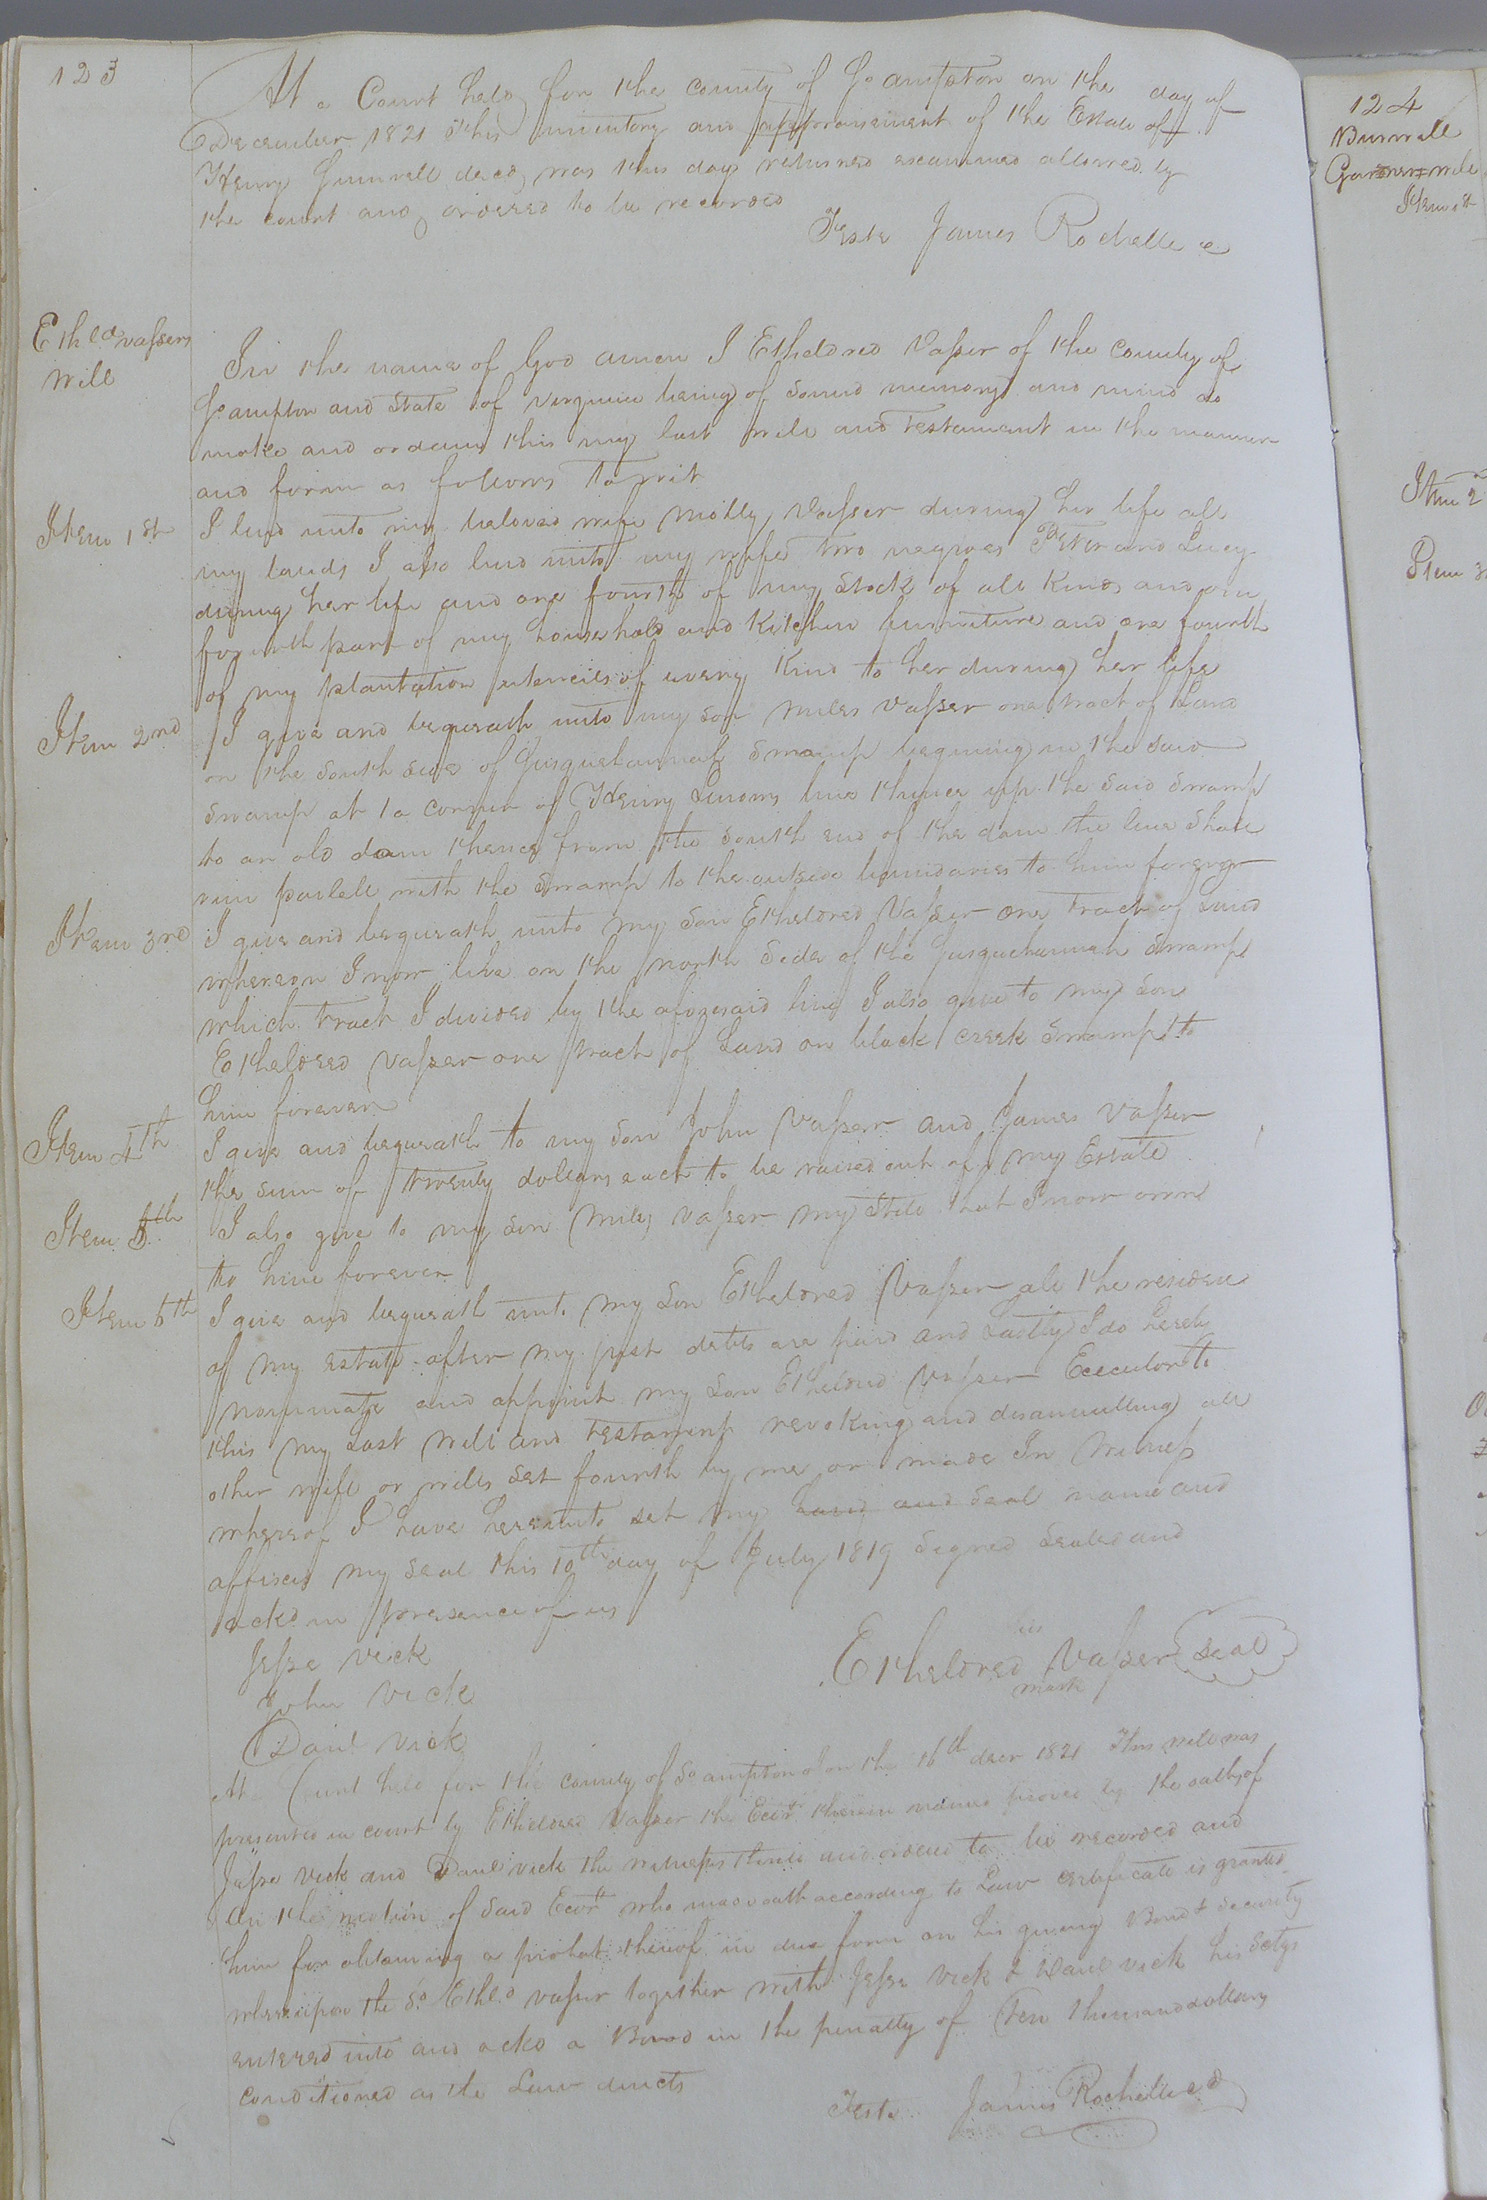 123
At a Court held for the county of So ampton on the day of
December 1821 this inventory and appraisement of the Estate of
Henry Gunnell decd was this day returned examined allowed by
the court and ordered to be recorded
Teste James Rochelle c
Etheld vassers
will
In the name of God amen I Etheldred Vasser of the county of
So ampton and State of virginia being of sound memory and mind do
make and ordain this my last will and testament in the manner
and form as follows to wit
Item 1st
I lend unto my beloved wife Molly Vasser during her life all
my lands I also lend unto my wife two negroes Peter and Lucy
during her life and one fourth of my stock of all kinds and one
fourth part of my household and Kitchen furniture and one fourth
of my plantation utencies of every Kind to her during her life
Item 2nd
I give and bequeath unto my son Miles Vasser one tract of Land
on the South side of Susquehannah Swamp begining in the said
swamp at a corner of Henry line thence up the said swamp
to an old dam thence from the south end of the dam the line shall
run parlell with the Swamp to the outside boundaries to him forever
Item 3rd
I give and bequeath unto my son Etheldred Vasser one tract of Land
whereon I now live on the north side of the Susquehannah Swamp
which tract I divided by the aforesaid line I also give to my son
Etheldred Vasser one tract of Land on black creek Swamp to
him forever
Item 4th
I give and bequeath to my son John Vasser and James Vasser
the sum of twenty dollars each to be raised out of my Estate
Item 5th
I also give to my son Miles Vasser my Still that I now own
to him forever
Item 6th
I give and bequeath unto my son Etheldred Vasser all the residue
of my estate after my just debts are paid and Lastly I do hereby
nominate and appoint my son Etheldred Vasser Executor to
this my last will and testament revoking and disannulling all
other will or wills set fourth by me or made In Witness
whereof I have hereunto set my hand and seal name and
affixed my seal this 10th day of July 1819 Signed sealed and
ackd in presence of us
Jesse Vick
John Vick
Danl Vick
his
Etheldred Vasser seal
mark
At a Court held for the county of So ampton on the 16th decr 1821 This will was
presented in court by Etheldred Vasser the Ecor therein named proved by the oaths of
Jesse Vick and Danl Vick the witnesses thereto and ordered to be recorded and
on the motion of said Ecor who made oath according to Law certificate is granted
him for obtaining a probat thereof in due form on his giving Bond & Security
whereupon the sd Etheld vasser together with Jesse Vick & Danl Vick his Setys
entered into and ackd a Bond in the penalty of Ten thousand dollars
conditioned as the Law directs
Teste James Rochelle c
124
Burwell
Item 1st
Item 2
Item 3